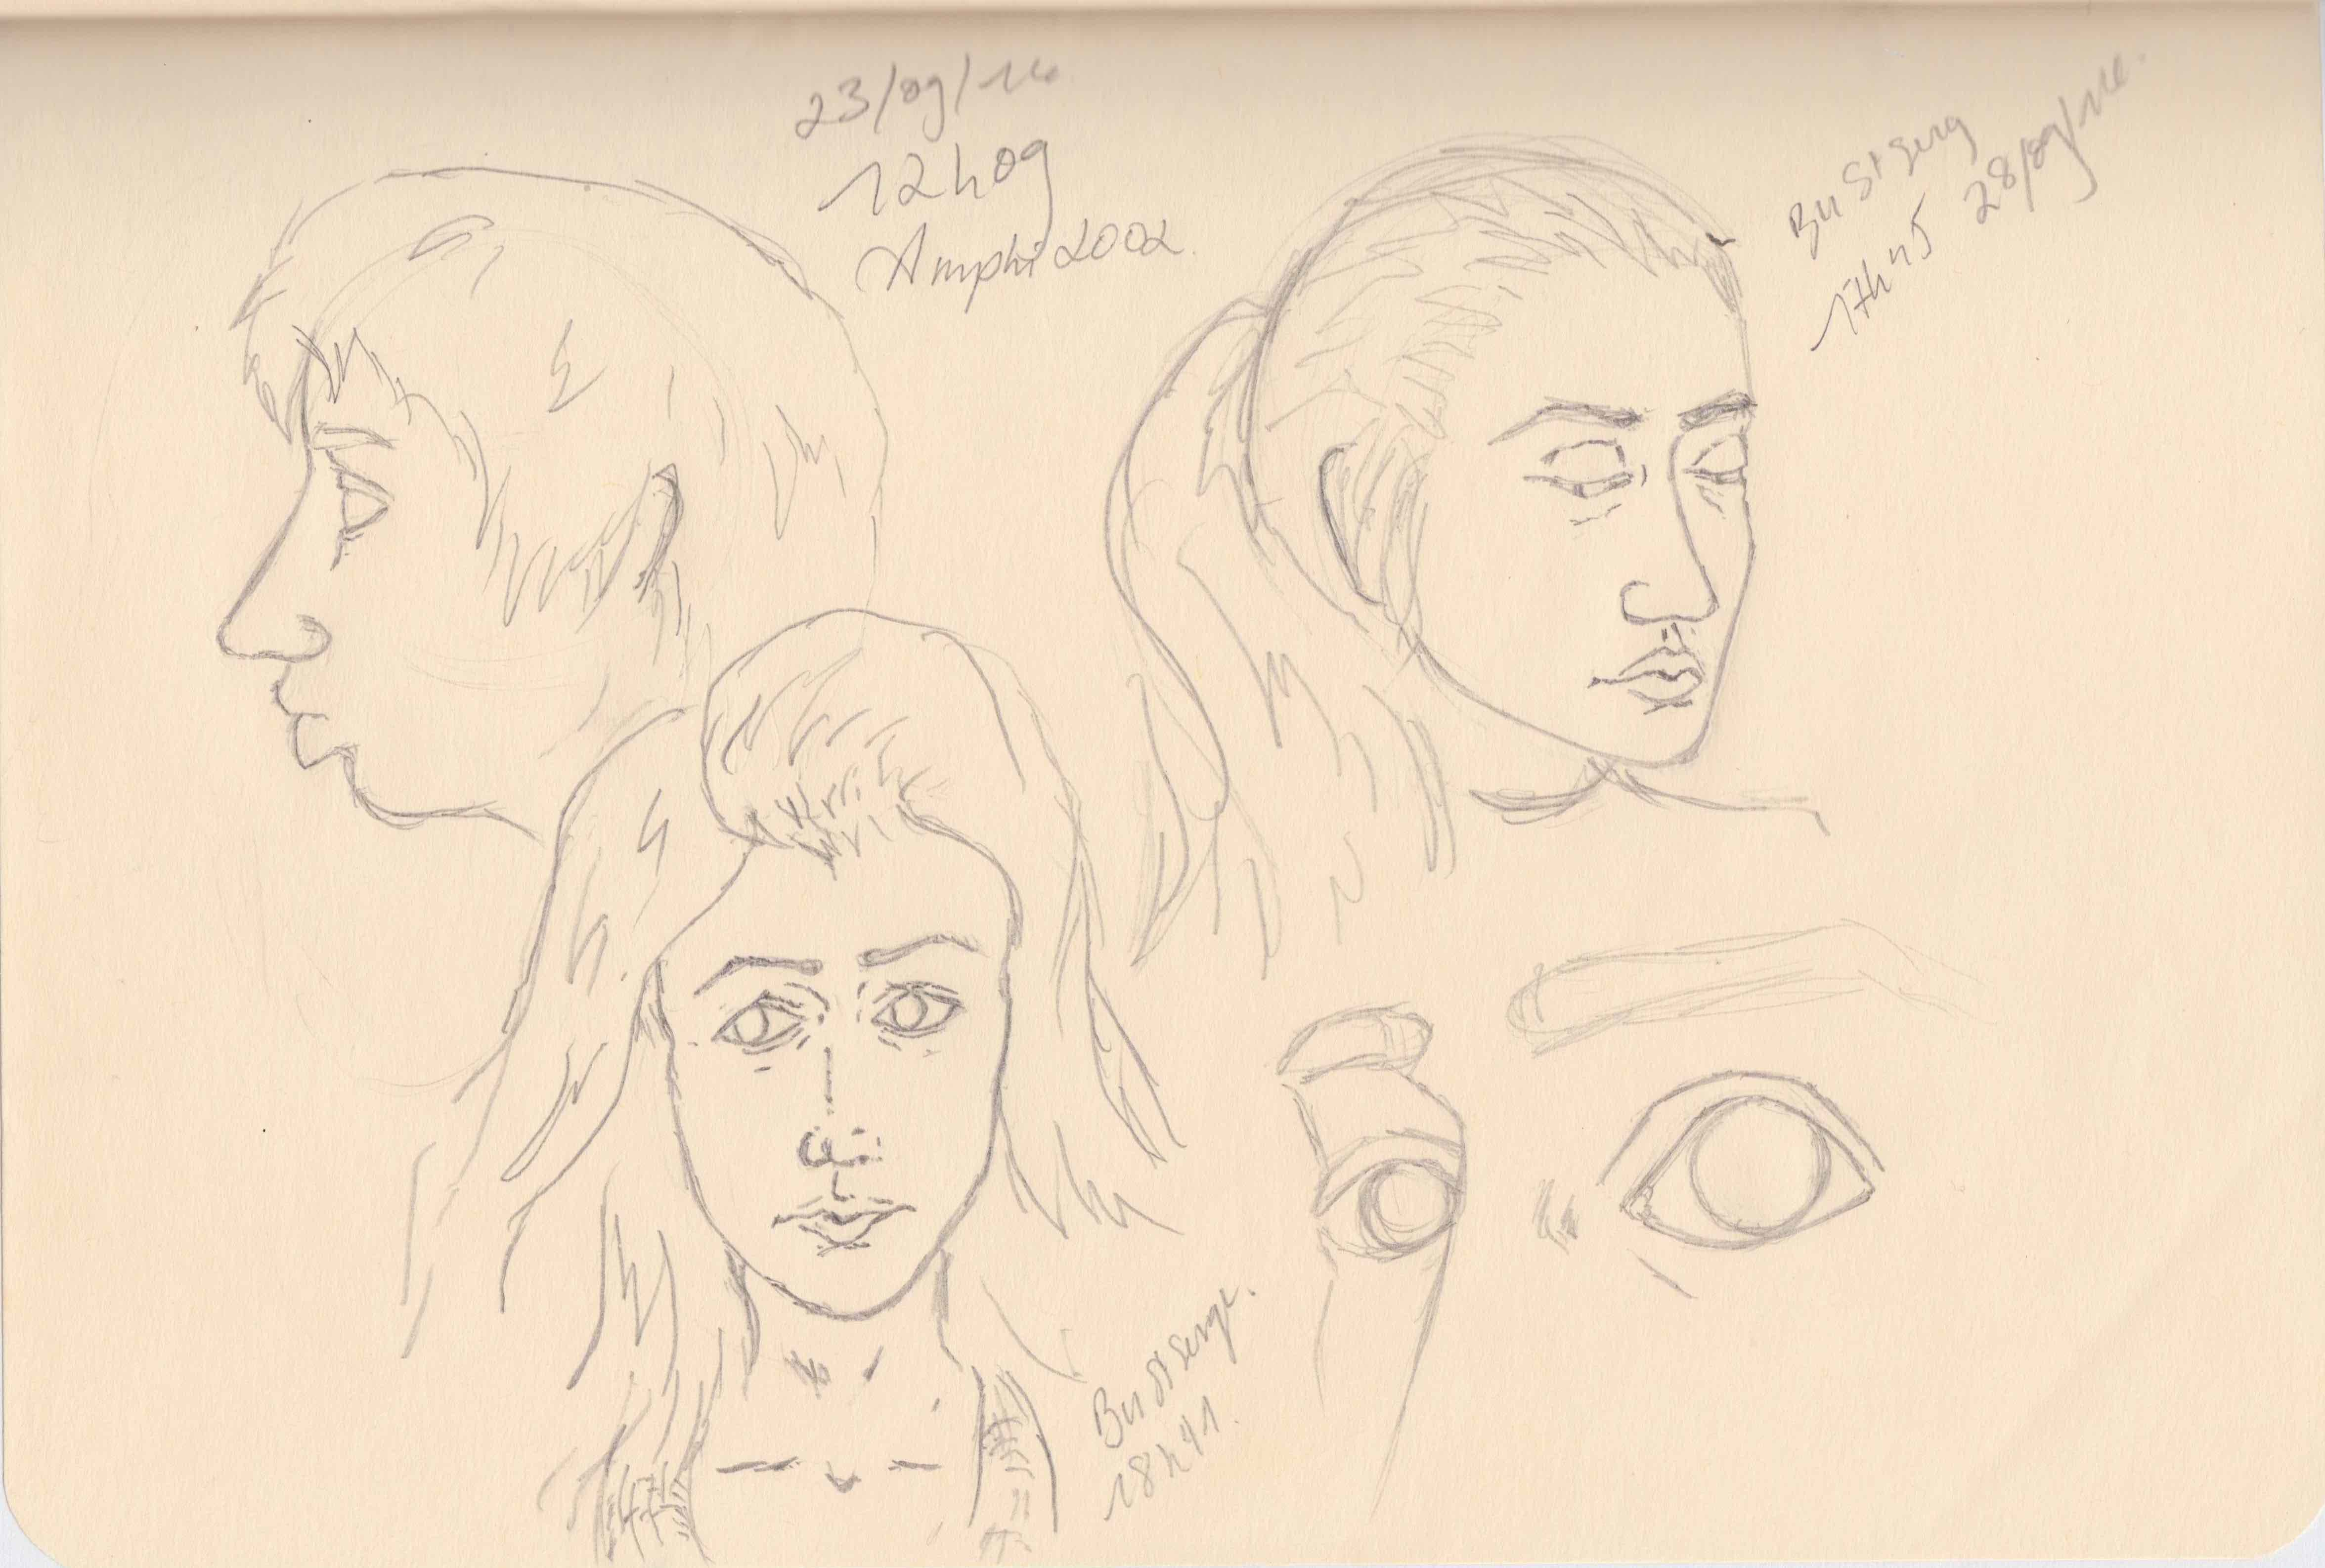 23/09/14
12h09
Amphi 2002.
Bu St Serg
17h45 28/09/14.
Bu St Serge.
18h41.